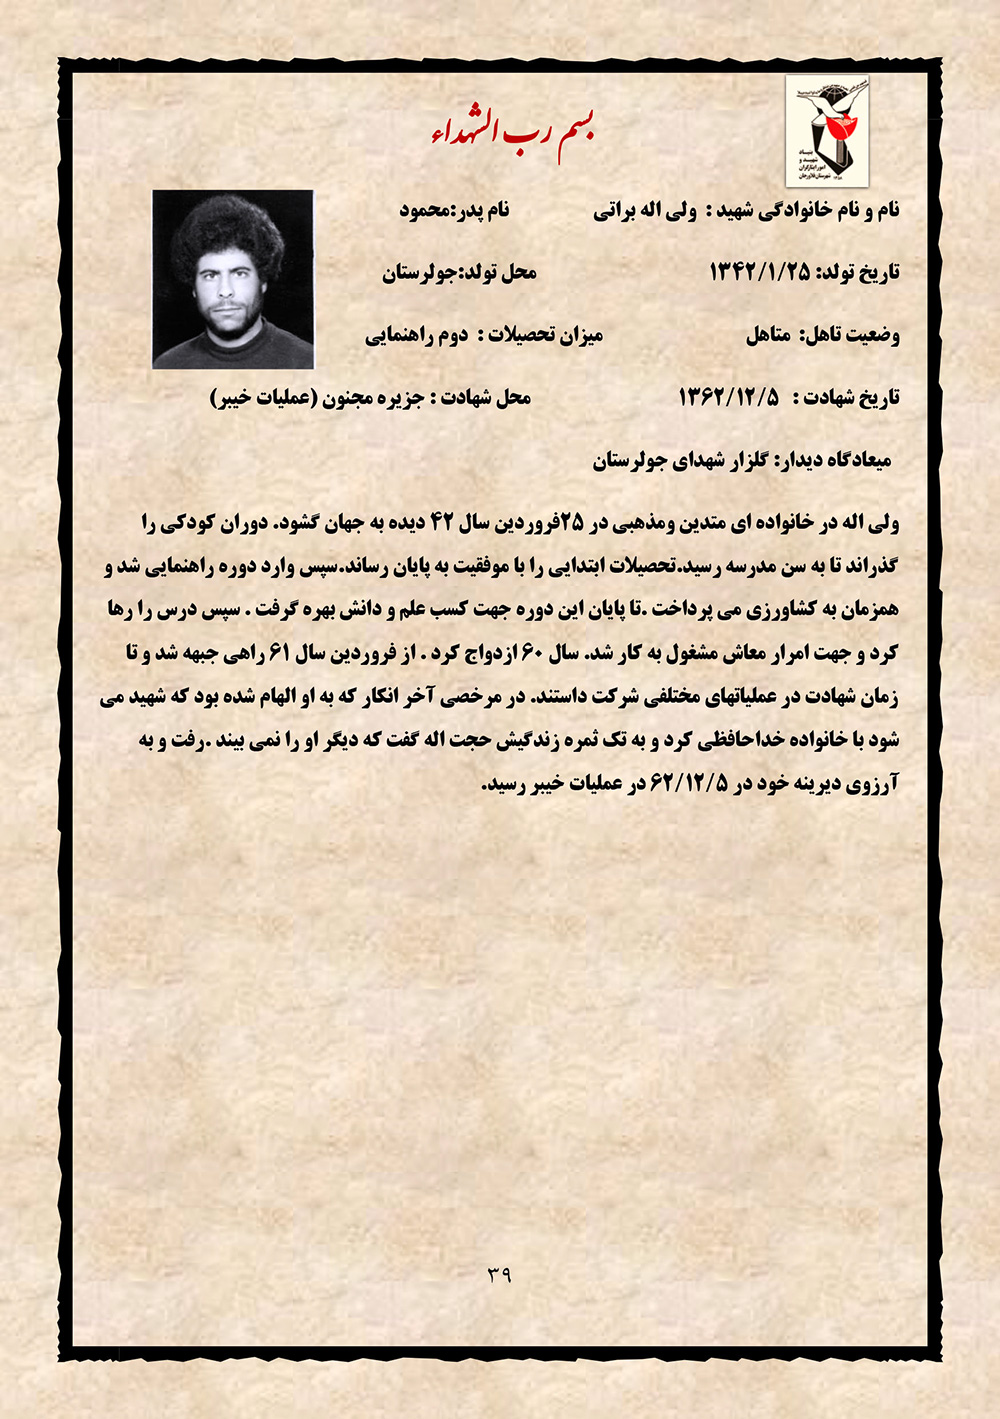 بسم رب الشهداء
بنیاد
شهید و
امور ایثارگران
شهرستان فلاورجان
نام و نام خانوادگی شهید : ولی اله براتی نام پدر:محمود
تاریخ تولد: ۱۳۴۲/۱/۲۵ محل تولد:جولرستان
وضعیت تاهل: متاهل میزان تحصیلات : دوم راهنمایی
تاریخ شهادت : ۱۳۶۲/۱۲/۵ محل شهادت : جزیره مجنون (عملیات خیبر)
میعادگاه دیدار: گلزار شهدای جولرستان
ولی اله در خانواده ای متدین ومذهبی در ۲۵فروردین سال ۴۲ دیده به جهان گشود. دوران کودکی را
گذراند تا به سن مدرسه رسید.تحصیلات ابتدایی را با موفقیت به پایان رساند.سپس وارد دوره راهنمایی شد و
همزمان به کشاورزی می پرداخت .تا پایان این دوره جهت کسب علم و دانش بهره گرفت . سپس درس را رها
کرد و جهت امرار معاش مشغول به کار شد. سال ۶۰ ازدواج کرد . از فروردین سال ۶۱ راهی جبهه شد و تا
زمان شهادت در عملیاتهای مختلفی شرکت داستند. در مرخصی آخر انکار که به او الهام شده بود که شهید می
شود با خانواده خداحافظی کرد و به تک ثمره زندگیش حجت اله گفت که دیگر او را نمی بیند .رفت و به
آرزوی دیرینه خود در ۶۲/۱۲/۵ در عملیات خیبر رسید.
۳۹